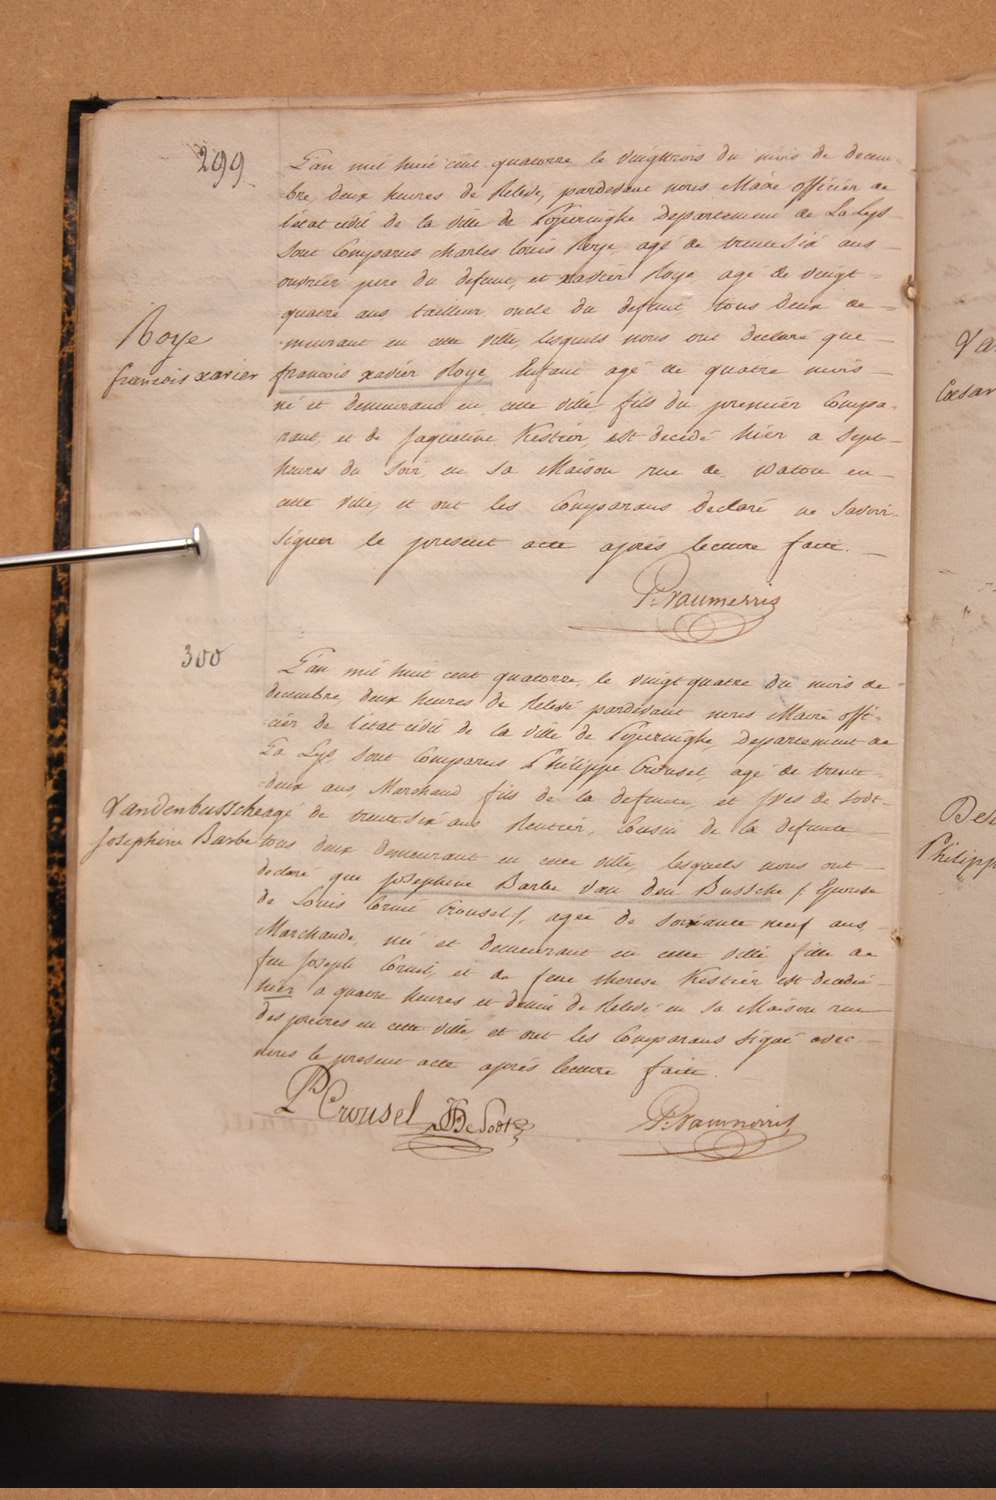 299
L'an mil huit cent quatorze le vingttrois du mois de decem-
bre, deux heures de Relevé, pardevant nous Maire officier de
l'etat civil de la ville de Poperinghe Departement de La Lys
sont Comparus charles Louis Roye, agé de trentesix ans
ouvrier pere du defunt, et xavier Roye agé de vingt-
quatre ans tailleur oncle du defunt tous deux de-
meurant en cette ville, lesquels nous ont declaré que
Roye
francois xavier
francois xavier Roye Enfant agé de quatre mois
né et demeurant en cette ville fils du premier Compa-
rant, et de Jaqueline Kestier, est decedé hier a sept
heures du soir en sa Maison rue de watou en
cette ville, et ont les Comparans declaré ne savoir
signer le present acte après lecture faite.
P. vanmerris
300
L'an mil huit cent quatorze, le vingt quatre du mois de
decembre, deux heures de Relevé pardevant nous Maire offi-
cier de l'etat civil de la ville de Poperinghe, Departement de
La Lys sont Comparus Philippe Crousel, agé de trente
deux ans, Marchand fils de la defunte, et yves de Sodt
Vandenbussche
agé de trentesix ans Rentier, Cousin de la defunte
Josephine Barbe
tous deux demeurant en cette ville, lesquels nous ont
declaré que Josephine Barbe Van den Bussche /: Epouse
de Louis Crousel /, agée de soixante neuf ans
Marchande, née et demeurant en cette ville fille de
feu Joseph Corneil, et de feue therese Kestier est decedée
hier a quatre heures et demie de Relevé en sa Maison rue
des pretres en cette ville, et ont les Comparans signé avec
nous le present acte après lecture faite.
Ph Crousel
De Sodt
P. vanmerris
Van
Caesar
Philipp